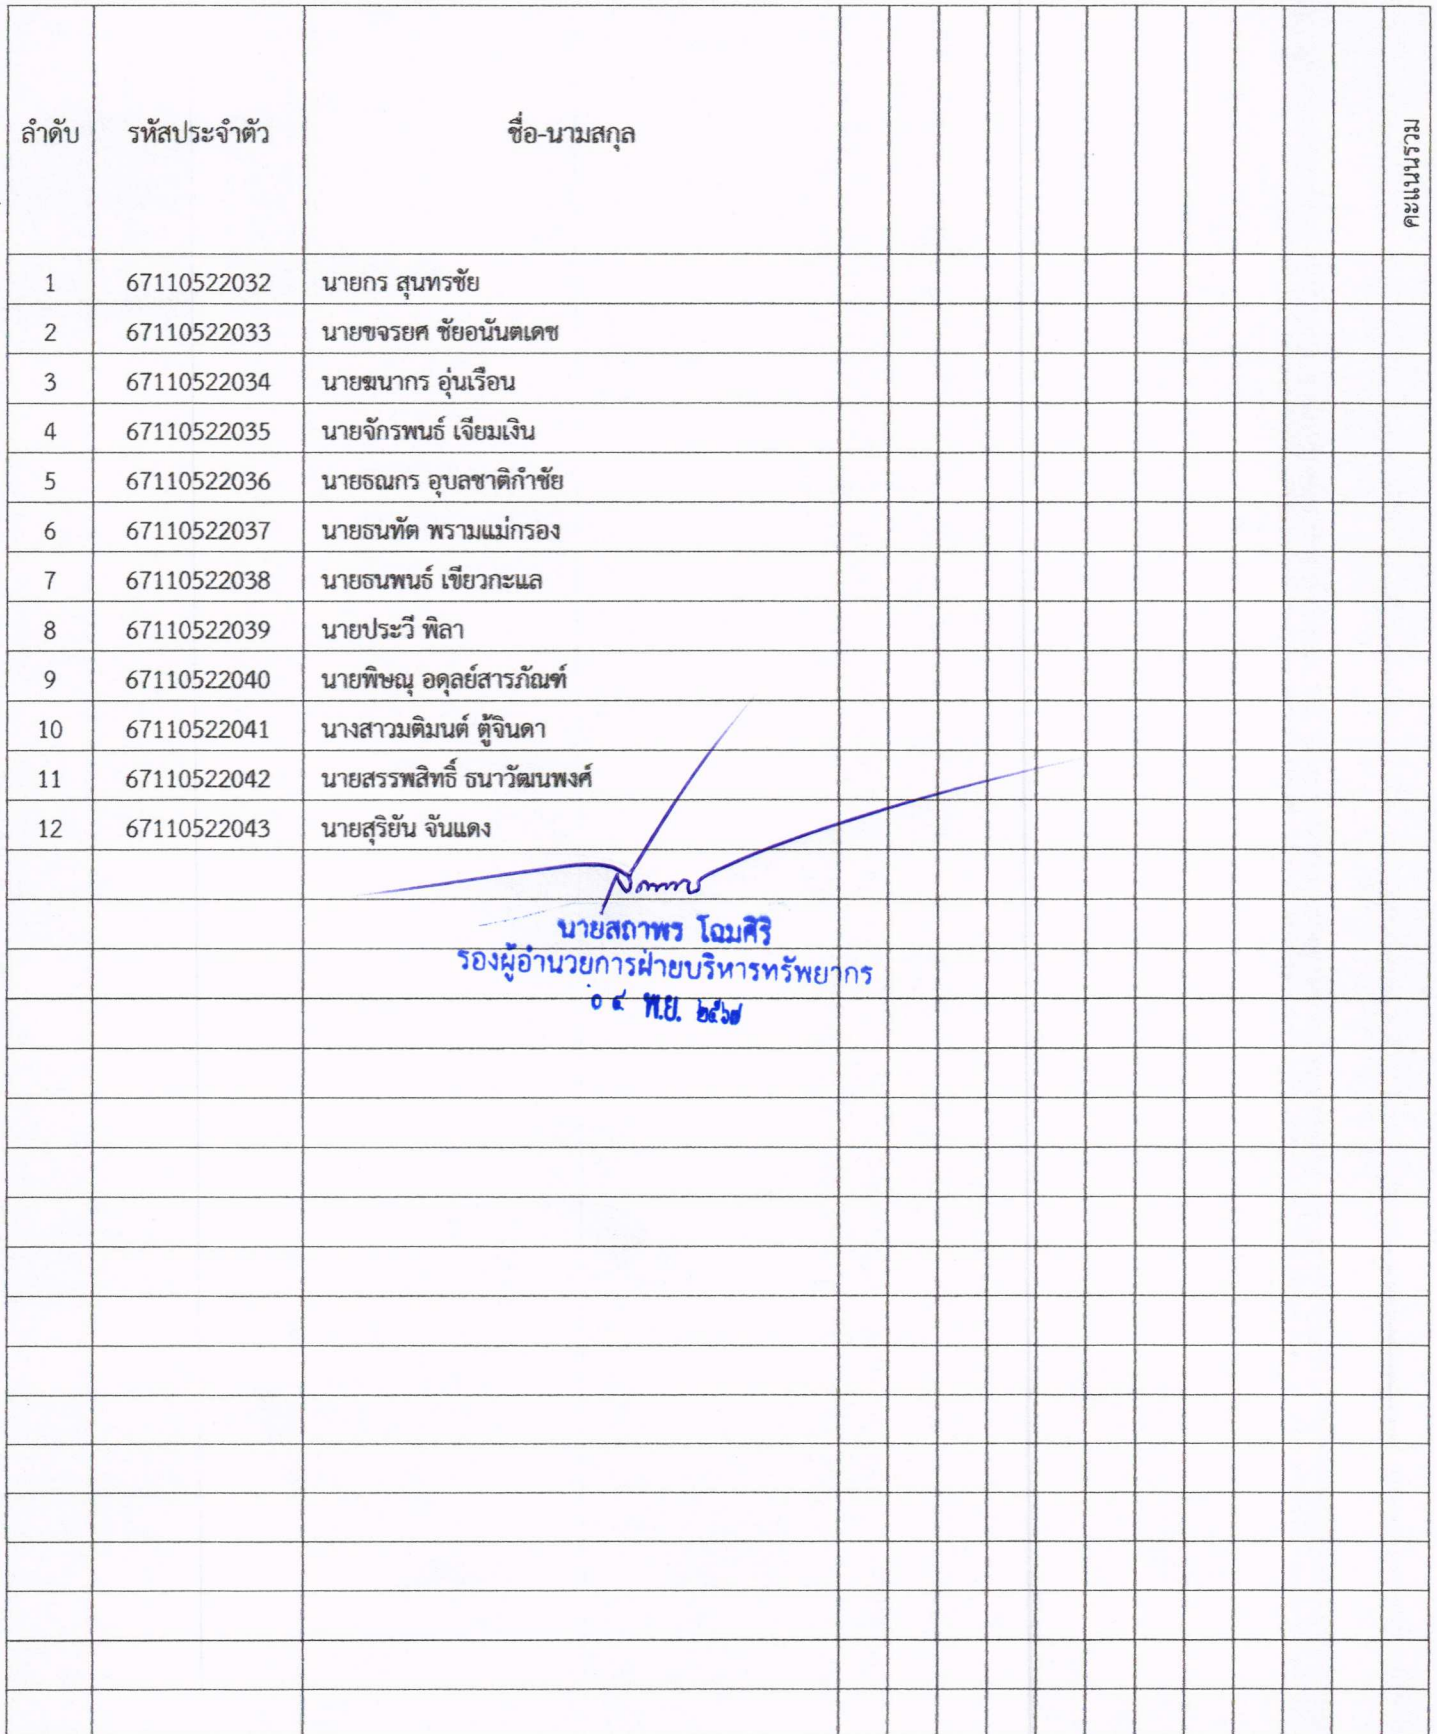 ลำดับ รหัสประจำตัว ชื่อ-นามสกุล คะแนนรวม
1 67110522032 นายกร สุนทรชัย
2 67110522033 นายขจรยศ ชัยอนันตเดช
3 67110522034 นายฆนากร อุ่นเรือน
4 67110522035 นายจักรพนธ์ เจียมเงิน
5 67110522036 นายธณกร อุบลชาติกำชัย
6 67110522037 นายธนทัต พรามแม่กรอง
7 67110522038 นายธนพนธ์ เขียวกะแล
8 67110522039 นายประวี พิลา
9 67110522040 นายพิษณุ อดุลย์สารภัณฑ์
10 67110522041 นางสาวมติมนต์ ตู้จินดา
11 67110522042 นายสรรพสิทธิ์ ธนาวัฒนพงศ์
12 67110522043 นายสุริยัน จันแดง
นายสถาพร โฉมศิริ
รองผู้อำนวยการฝ่ายบริหารทรัพยากร
๐ ๔ พ.ย. ๒๕๖๗